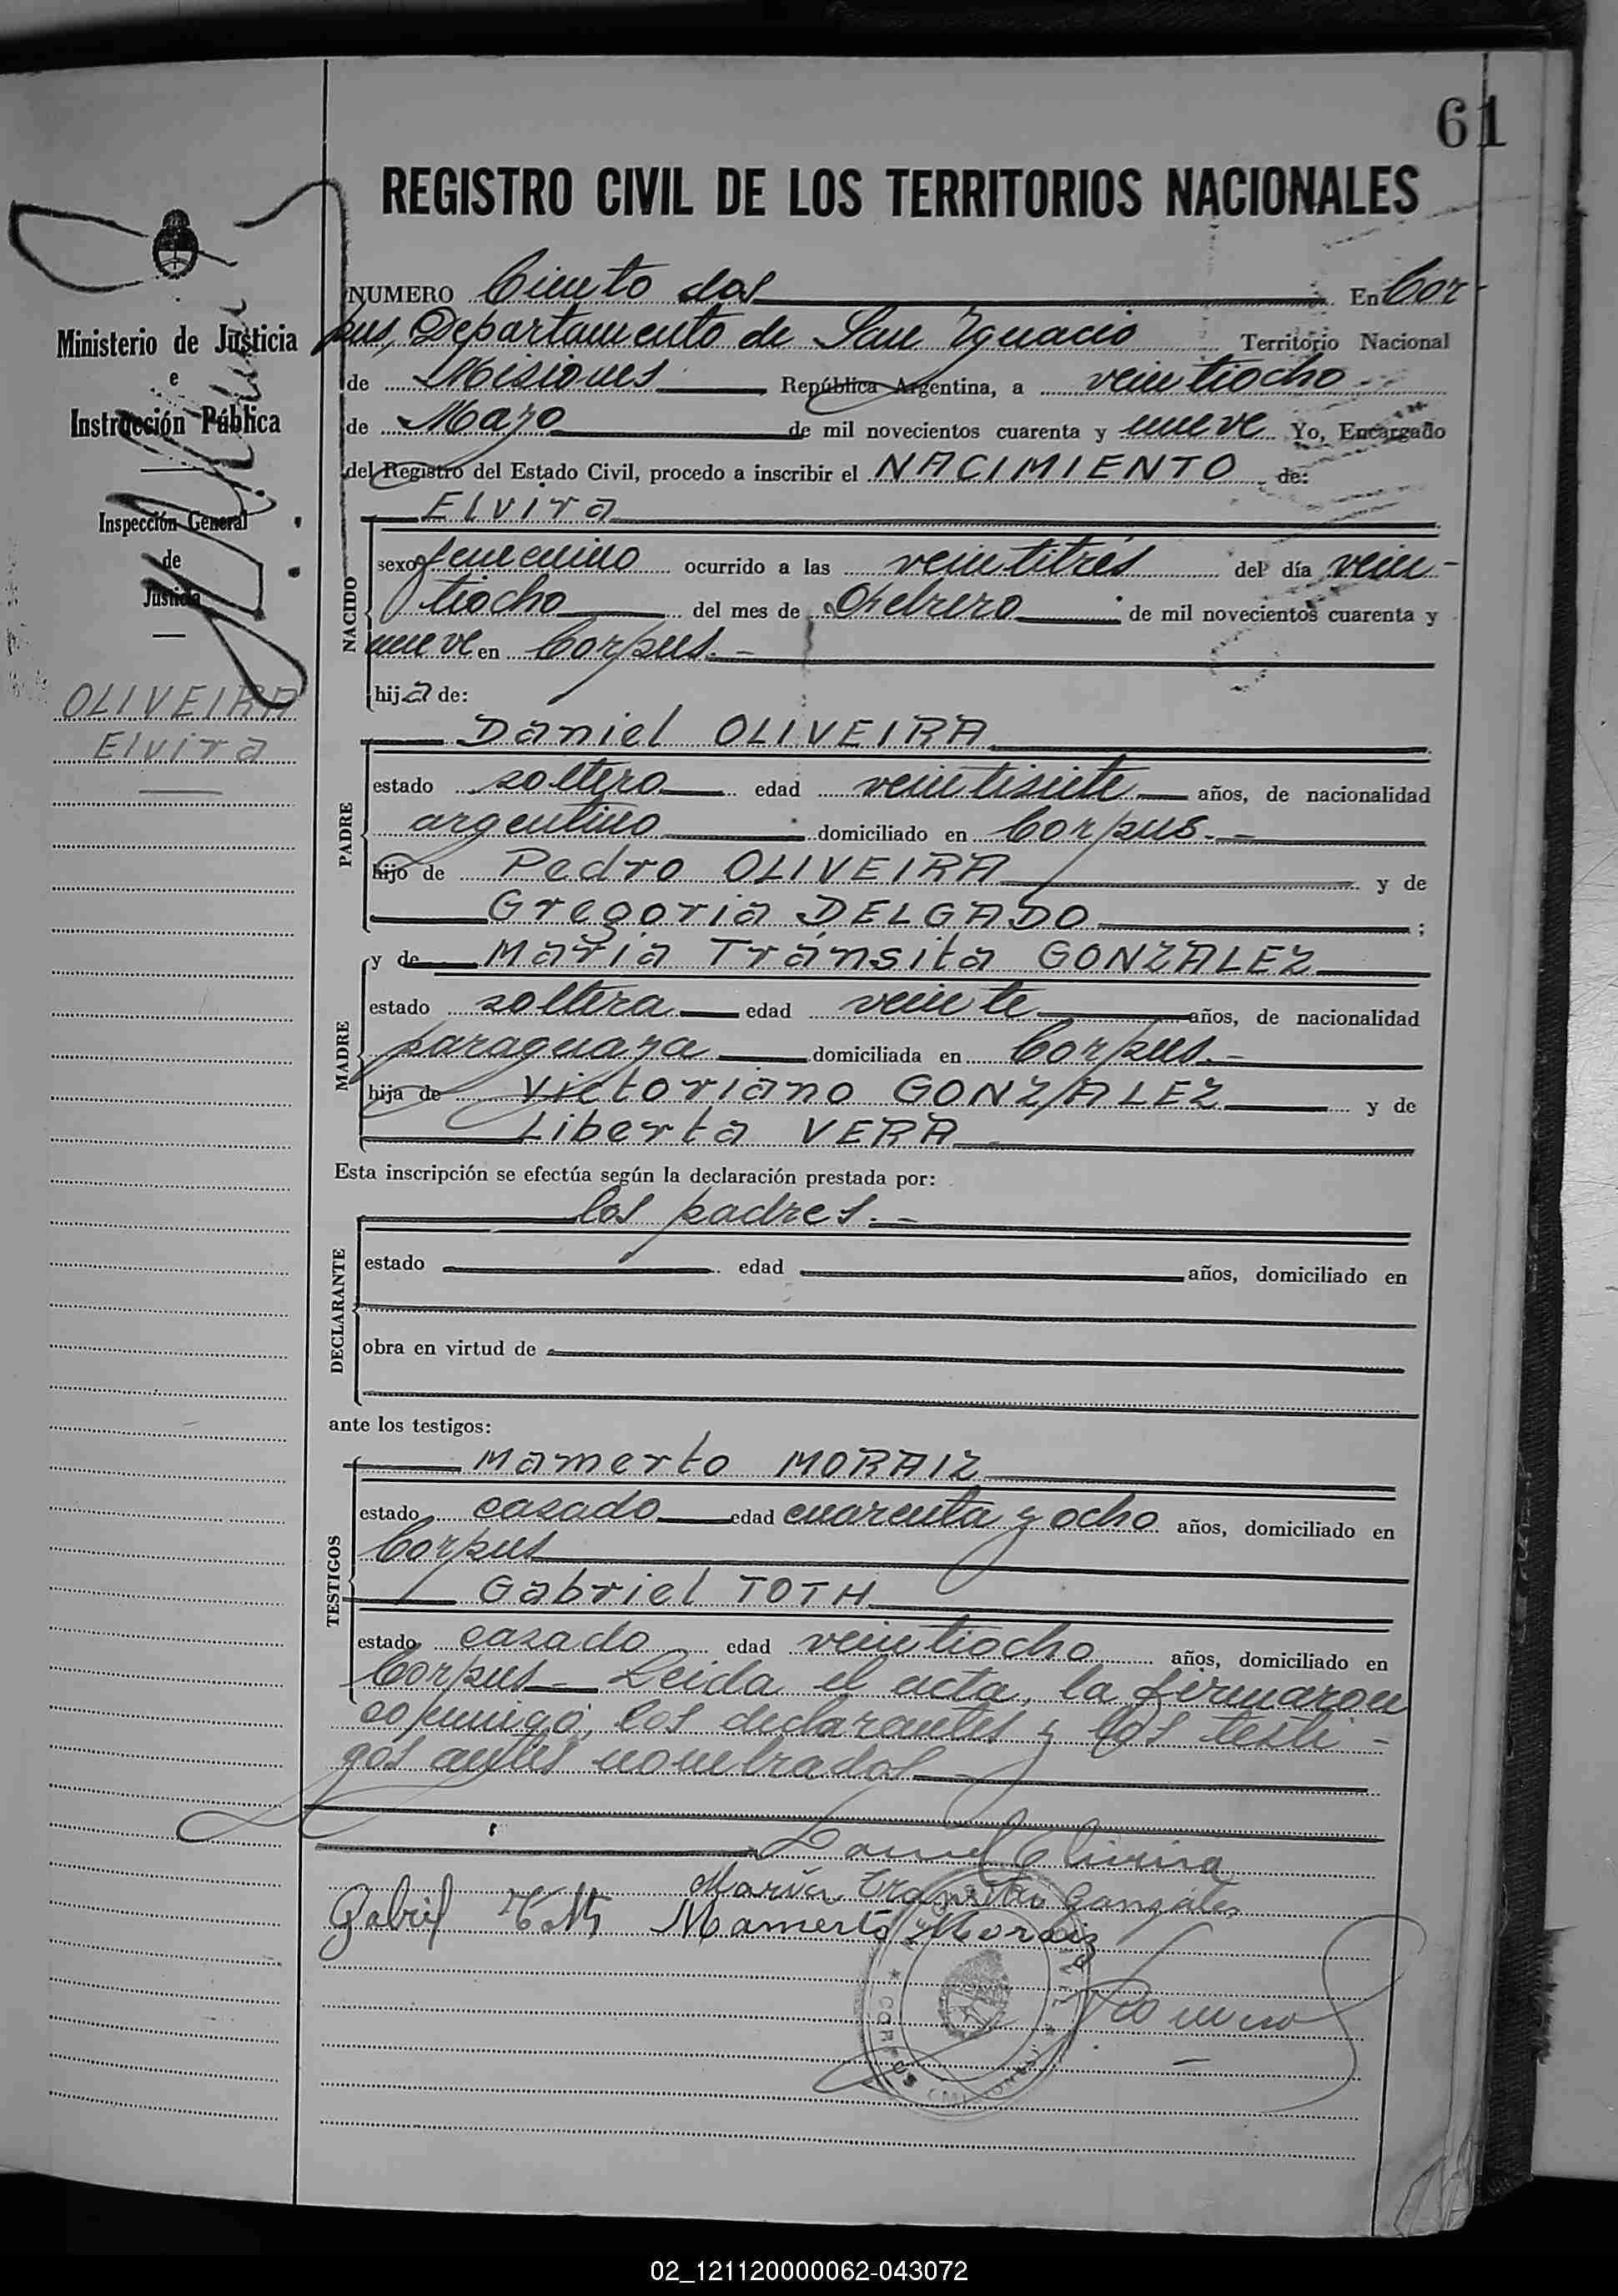 61
REGISTRO CIVIL DE LOS TERRITORIOS NACIONALES
Ministerio de Justicia
e
Instrucción Pública
Inspección General
de
Justicia
OLIVEIRA
Elvira
NUMERO Ciento dos En Cor-
pus, Departamento de San Ygnacio Territorio Nacional
de Misiones República Argentina, a veintiocho
de Mayo de mil novecientos cuarenta y nueve Yo, Encargado
del Registro del Estado Civil, procedo a inscribir el NACIMIENTO de:
Elvira
NACIDO
sexo femenino ocurrido a las veintitrés del día vein-
tiocho del mes de Febrero de mil novecientos cuarenta y
nueve en Corpus.-
hija de:
Daniel OLIVEIRA
PADRE
estado soltero edad veintisiete años, de nacionalidad
argentino domiciliado en Corpus.-
hijo de Pedro OLIVEIRA y de
Gregoria DELGADO ;
y de María Tránsita GONZALEZ
MADRE
estado soltera edad veinte años, de nacionalidad
paraguaya domiciliada en Corpus.-
hija de Victoriano GONZALEZ y de
Liberta VERA
Esta inscripción se efectúa según la declaración prestada por:
los padres.-
DECLARANTE
estado edad años, domiciliado en
obra en virtud de
ante los testigos:
Mamerto MORAIZ
TESTIGOS
estado casado edad cuarenta y ocho años, domiciliado en
Corpus
Gabriel TOTH
estado casado edad veintiocho años, domiciliado en
Corpus Leida el acta, la firmaron
conmigo, los declarantes y los testi-
gos antes nombrados
Daniel Oliveira
María Transito Gonzales
Gabriel Toth Mamerto Moraiz
CORPUS
02_121120000062-043072